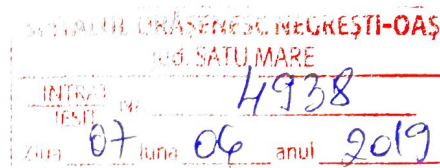 SPITALUL ORĂȘENESC NEGREȘTI-OAȘ
jud. SATU MARE
INTRAT
IEȘIT Nr. 4938
Ziua 07 luna 06 anul 2019